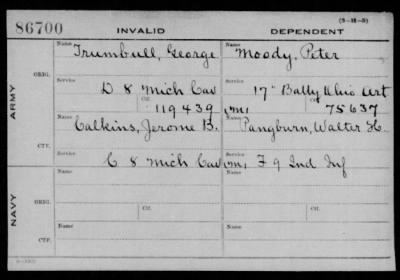 (3-11-3)
86700 INVALID DEPENDENT
ARMY
ORIG.
Name Trumbull, George
Name Moody, Peter
Service D 8 Mich Cav
Service 17" Batty Ohio Art
Ctf. 119439
(M) Ctf. 75637
CTF.
Name Calkins, Jerome B.
Name Pangburn, Walter H.
Service C 8 Mich Cav
(M) Service F 9 Ind Inf
NAVY
ORIG.
Name
Name
Ctf.
Ctf.
CTF.
Name
Name